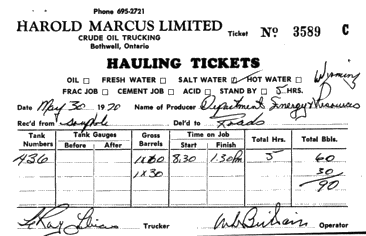 Phone 695-2721
HAROLD MARCUS LIMITED
CRUDE OIL TRUCKING
Bothwell, Ontario
Ticket Nº 3589 C
HAULING TICKETS
OIL □ FRESH WATER □ SALT WATER ☑ HOT WATER □ Wyoming
FRAC JOB □ CEMENT JOB □ ACID □ STAND BY □ 5 HRS.
Date May 30 1970 Name of Producer Department Energy & Resources
Rec'd from Del'd to Roads
Tank Numbers Tank Gauges Gross Barrels Time on Job Total Hrs. Total Bbls.
Before After Start Finish
436 1x60 8.30 1.30 PM 5 60
1x30 30
90
Trucker Operator